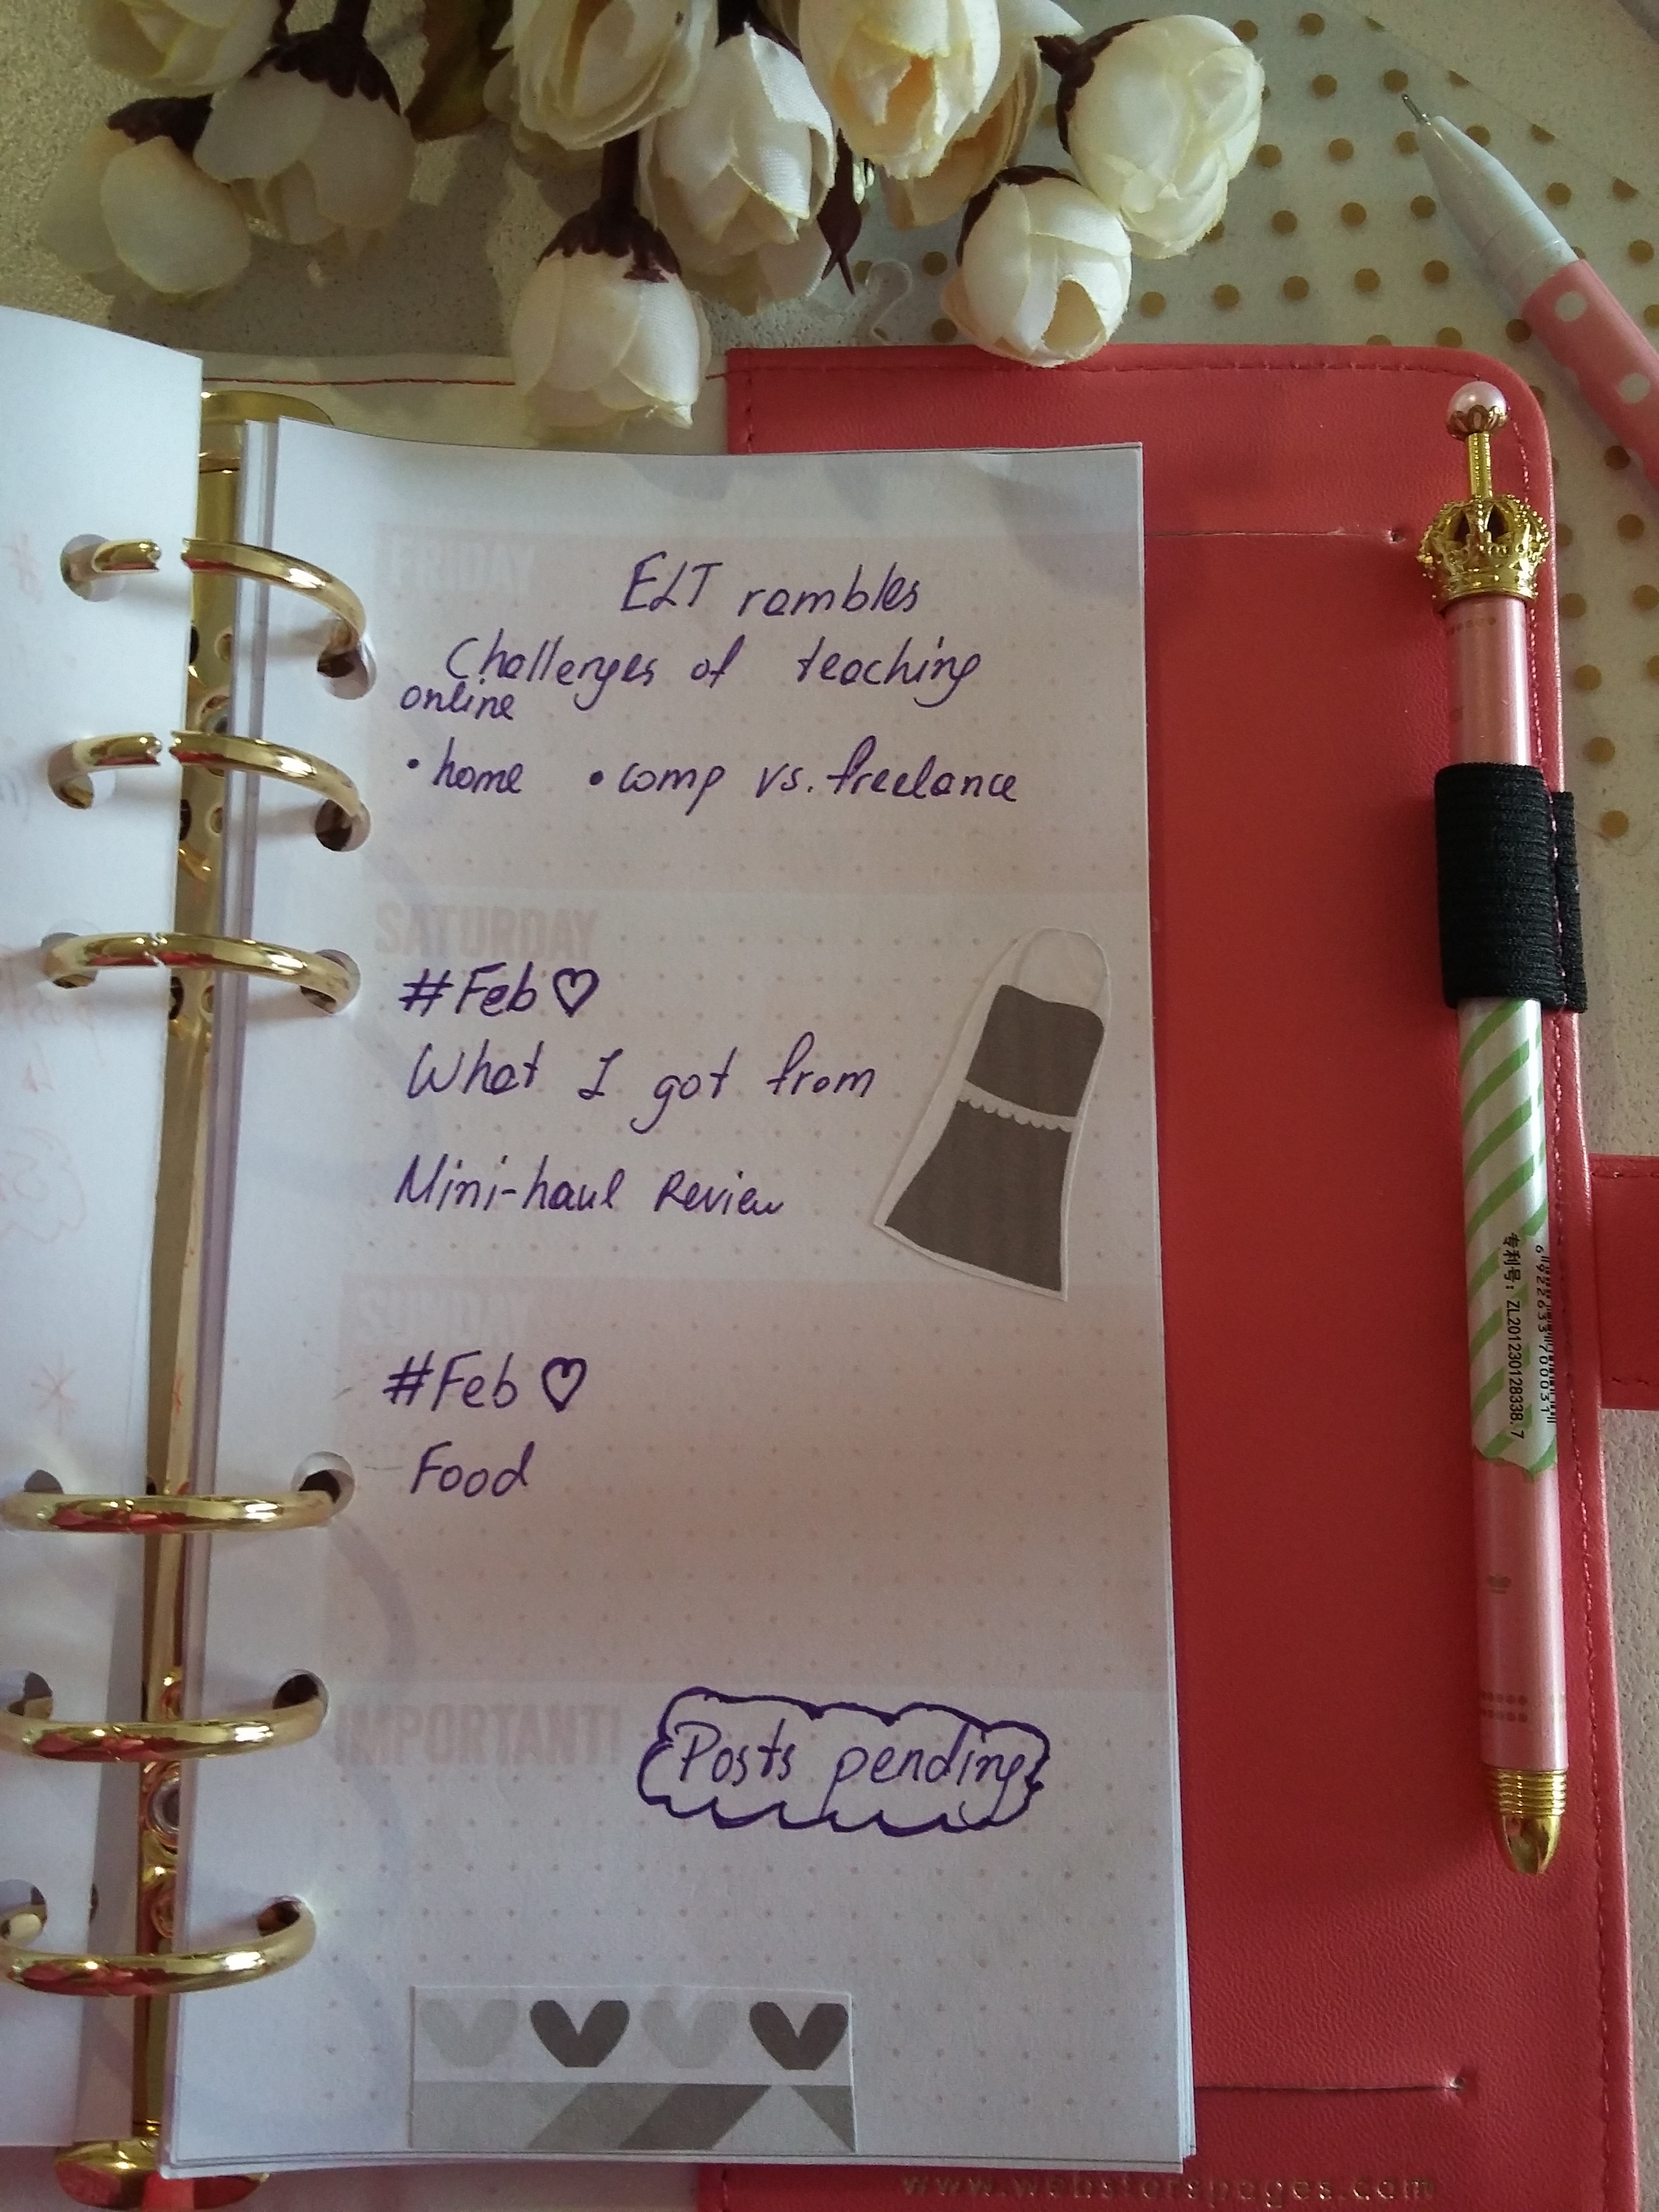 FRIDAY
ELT rambles
Challenges of teaching
online
• home • comp vs. freelance
SATURDAY
#Feb♡
What I got from
Mini-haul Review
SUNDAY
#Feb♡
Food
IMPORTANT!
Posts pending
专利号: ZL201230128338.7
www.websterspages.com